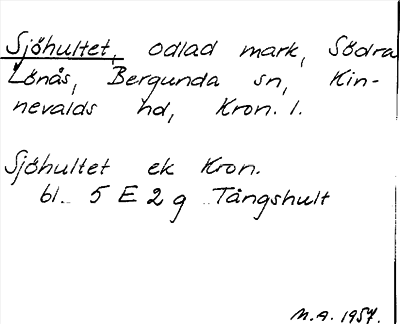 Sjöhultet, odlad mark, Södra
Lönås, Bergunda sn, Kin-
nevalds hd, Kron. l.
Sjöhultet ek Kron.
bl. 5 E 2 g Tångshult
M.A. 1957.